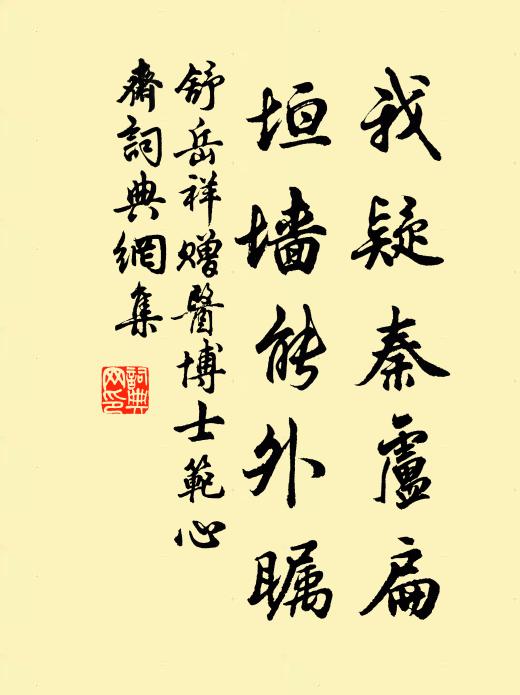 我疑秦盧扁
垣墙能外瞩
舒岳祥赠醫博士範心
齋詞典網集
詞典网印